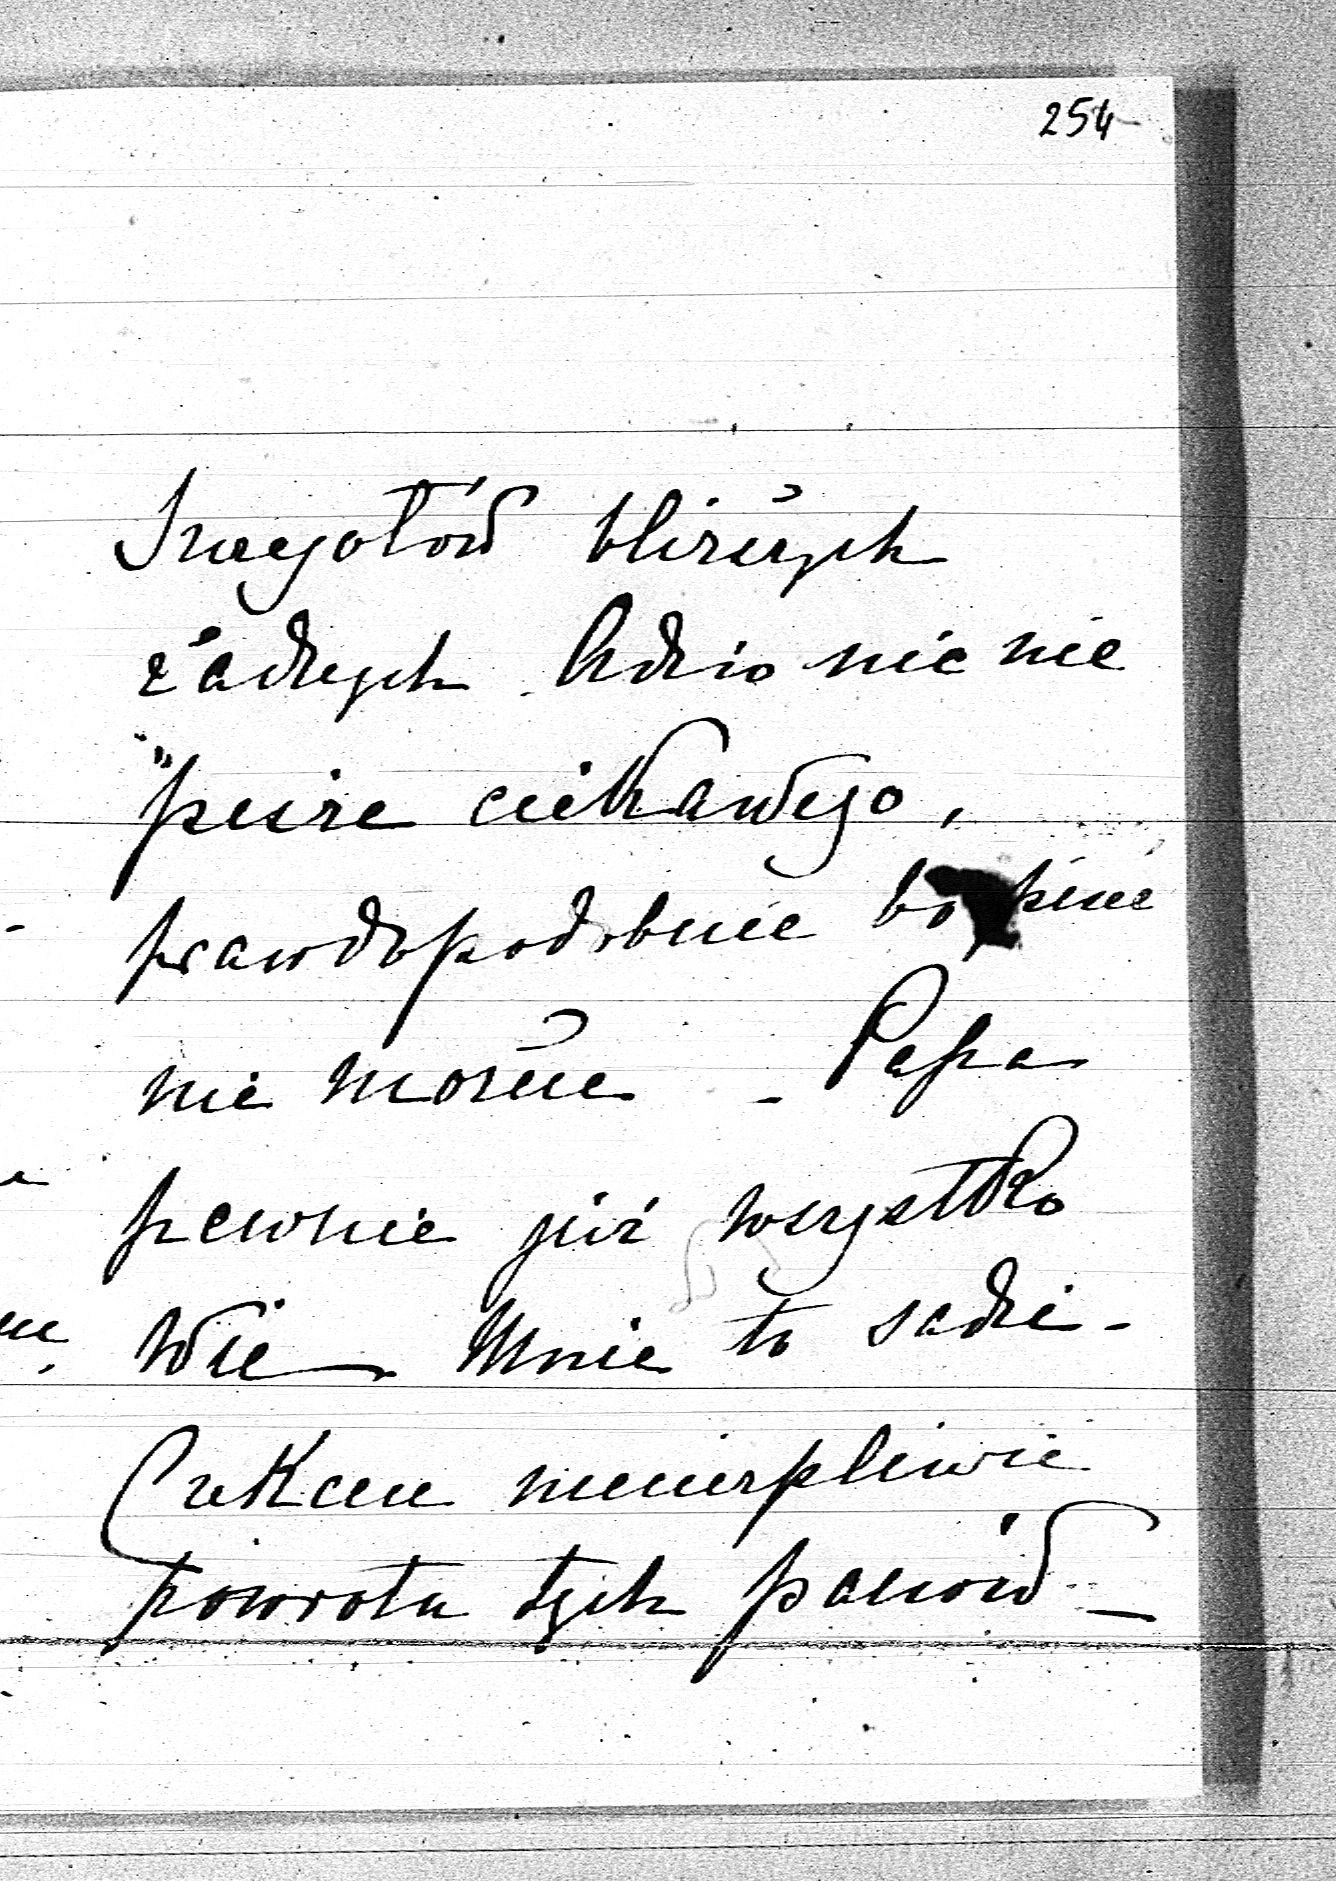 254
Szczegółów bliższych
żadnych. Adzio nic nie
pisze ciekawego,
prawdopodobnie bo pisać
nie może - Papa
pewnie już wszystko
wie - Mnie to sadzi-
Czekam niecierpliwie
powrotu tych panów -